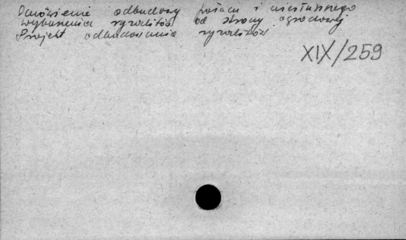 Omówienie odbudowy pałacu i
wyburzenia ryzalitów od strony ogrodowej
Projekt odbudowania ryzalitów
XIX/259